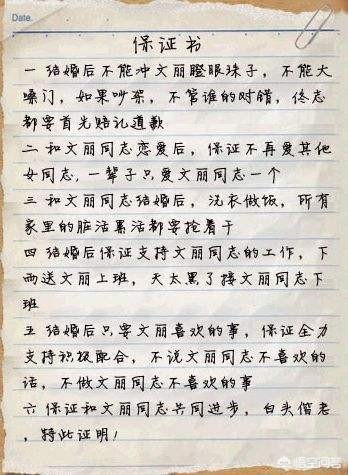 Date.
保证书
一 结婚后不能冲文丽瞪眼珠子，不能大
嗓门，如果吵架，不管谁的对错，佟志
都要首先赔礼道歉
二 和文丽同志恋爱后，保证不再爱其他
女同志，一辈子只爱文丽同志一个
三 和文丽同志结婚后，洗衣做饭，所有
家里的脏活累活都要抢着干
四 结婚后保证支持文丽同志的工作，下
雨送文丽上班，天太黑了接文丽同志下
班
五 结婚后只要文丽喜欢的事，保证全力
支持积极配合，不说文丽同志不喜欢的
话，不做文丽同志不喜欢的事
六 保证和文丽同志共同进步，白头偕老
，特此证明！
悟空问答